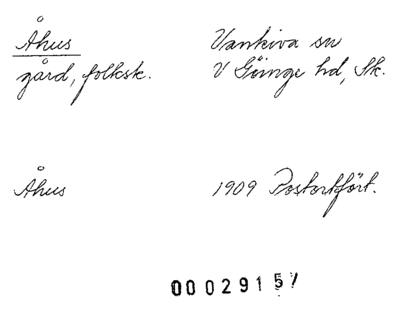 Åhus Vankiva sn
gård, folksk. V Göinge hd, Sk.
Åhus 1909 Postortfört.
00029157